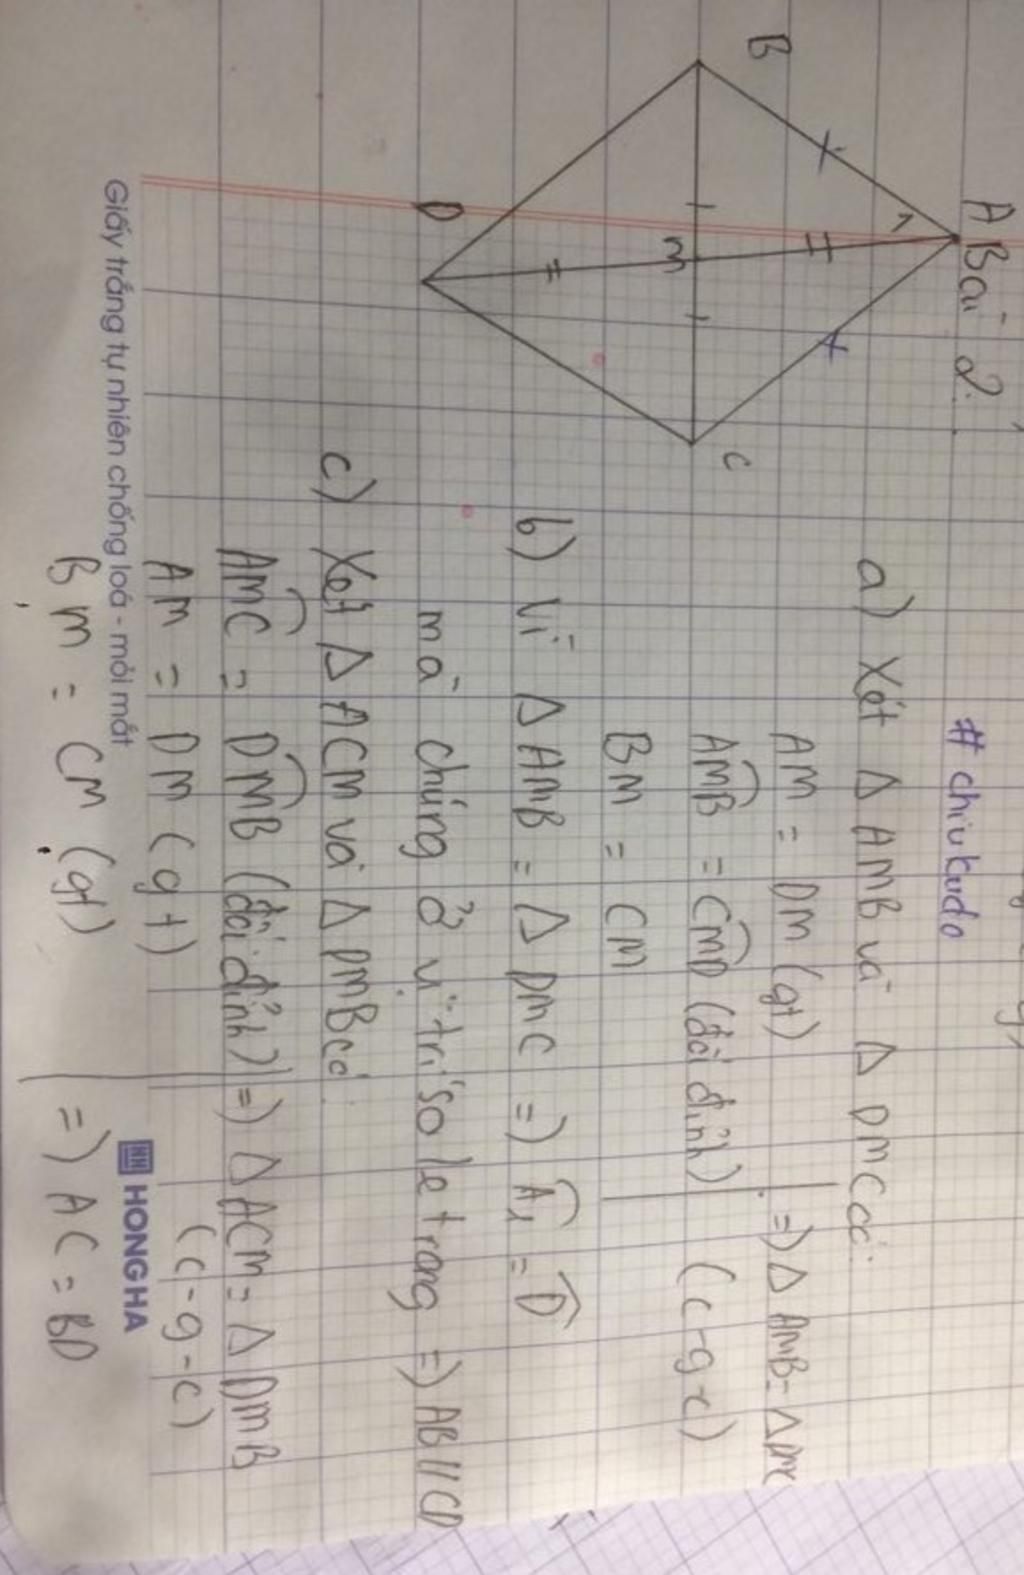 Bài 2:
A
B
C
M
D
1
# chiukudo
a) Xét Δ AMB và Δ DMC có:
AM = DM (gt)
AMB = CMD (đối đỉnh)
BM = CM
=) Δ AMB = Δ DMC
(c-g-c)
b) Vì Δ AMB = Δ DMC =) A1 = D
mà chúng ở vị trí so le trong =) AB // CD
c) Xét Δ ACM và Δ DMB có:
AMC = DMB (đối đỉnh)
AM = DM (gt)
BM = CM (gt)
=) Δ ACM = Δ DMB
(c-g-c)
=) AC = BD
Giấy trắng tự nhiên chống loá - mỏi mắt
HH HONG HA